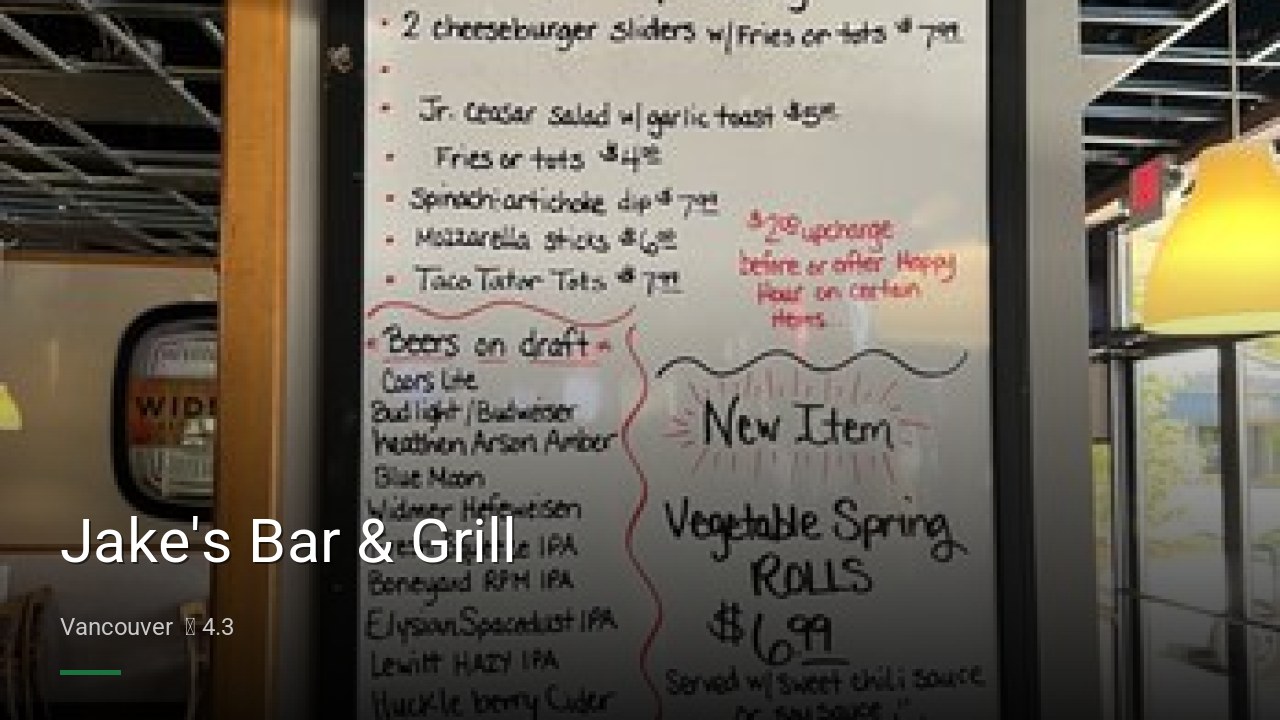 2 cheeseburger sliders w/Fries or tots $7.99
Jr. Ceasar salad w/garlic toast $5.00
Fries or tots $4.00
Spinach-artichoke dip $7.99
Mozzarella sticks $6.00
Taco Tator Tots $7.99
$2.00 upcharge
before or after Happy
Hour on certain
items...
Beers on draft
Coors Lite
Budlight/Budweiser
Heathen Arson Amber
Blue Moon
Widmer Hefeweisen
IPA
Boneyard RPM IPA
Elysian Spacedust IPA
Lewitt HAZY IPA
Huckle berry Cider
New Item
Vegetable Spring
ROLLS
$6.99
Served w/sweet chili sauce
or soy sauce
WID
Jake's Bar & Grill
Vancouver 4.3